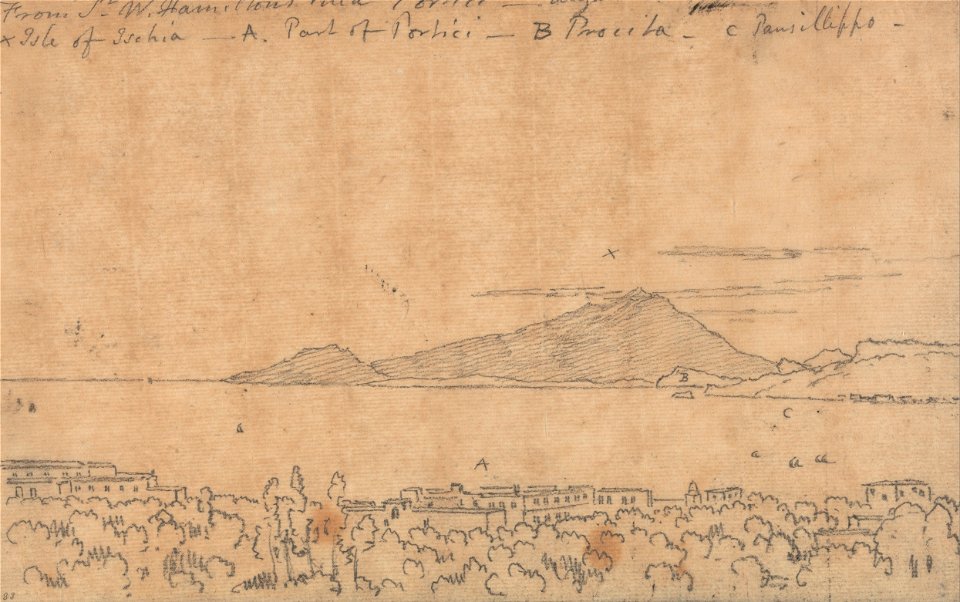 From Sr. W. Hamiltons Villa Portici —
x Isle of Ischia — A. Part of Portici — B Procita — C Pausillippo —
x
B
C
A